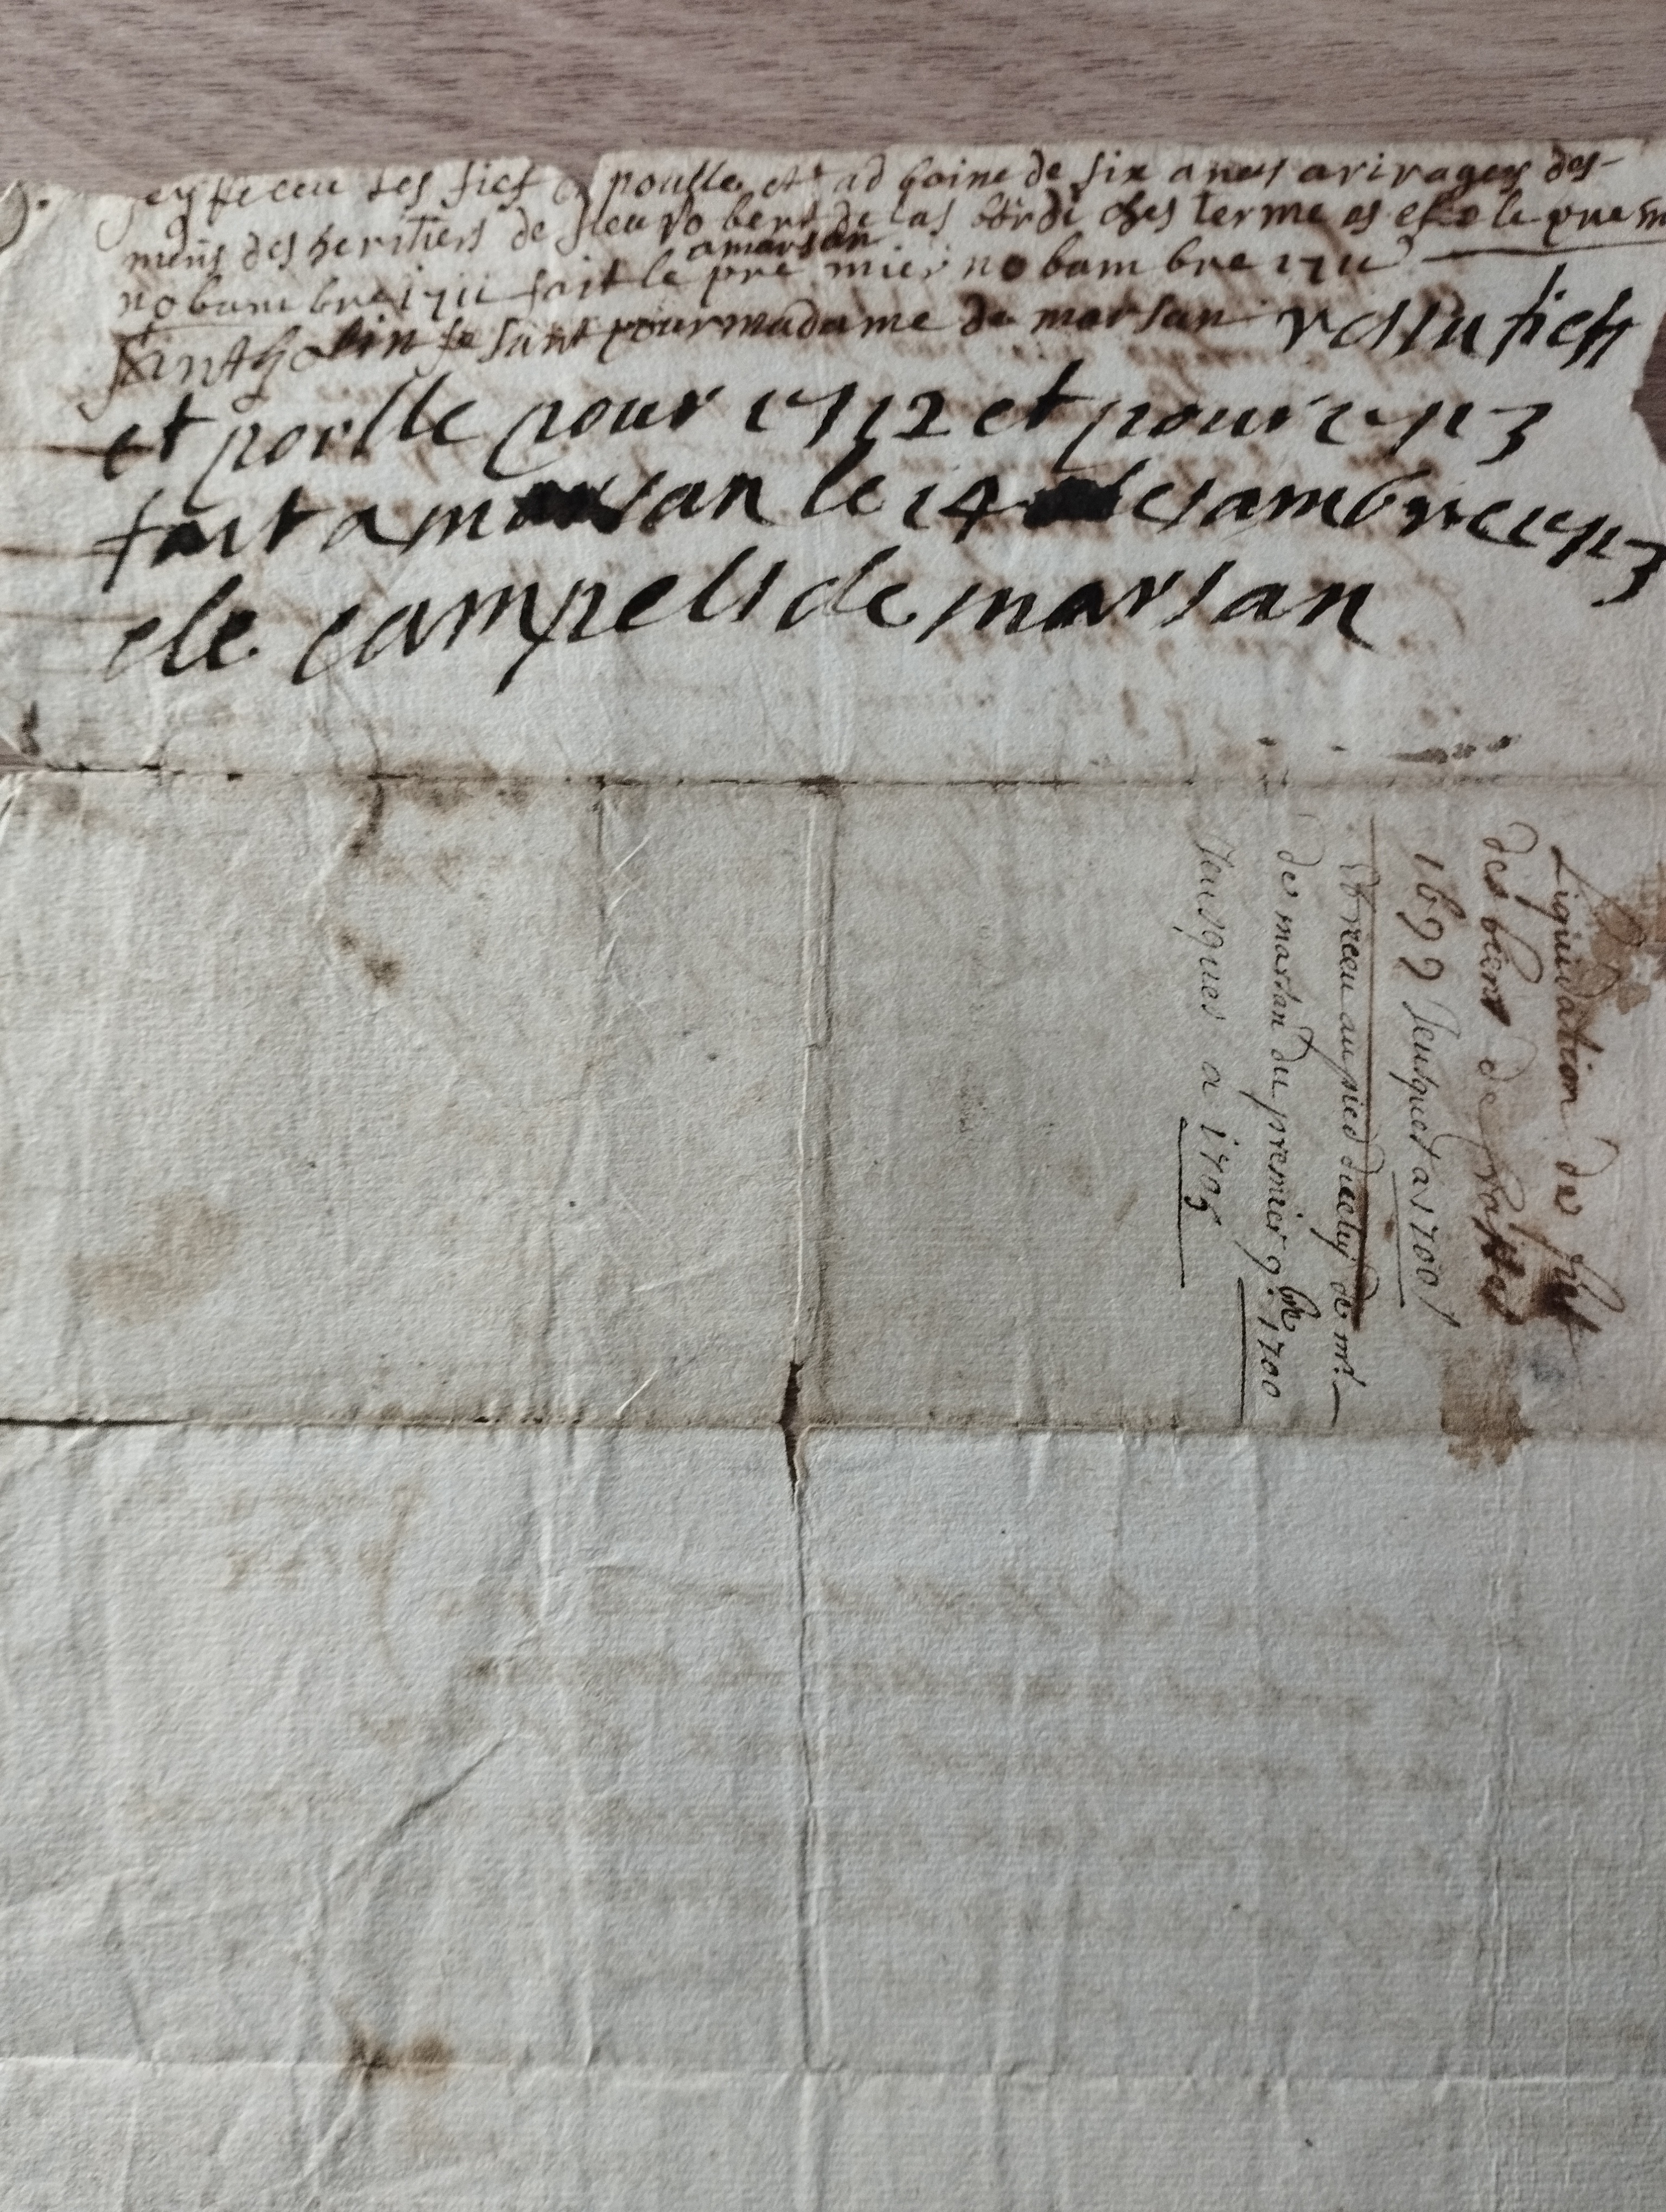 jey feceu les fief et poulle et ad boine de six anes arirages des-
meüs des heritiers de sieu robert de las bordi ches terme es escole prem
amarsan
nobambre 1711 fait le premier nobambre 1711
santholin fesant pour madame de marsan ressu fiefs
et poulle pour 1712 et pour 1713
fait a marsan le 14 desambre 1713
de campels de marsan
Liquidation des fief
des biens de
1699 Jeusques a 1700
et receu au pied diceluy de mr.
de marsan du premier 9bre 1700
Jeusques a 1705